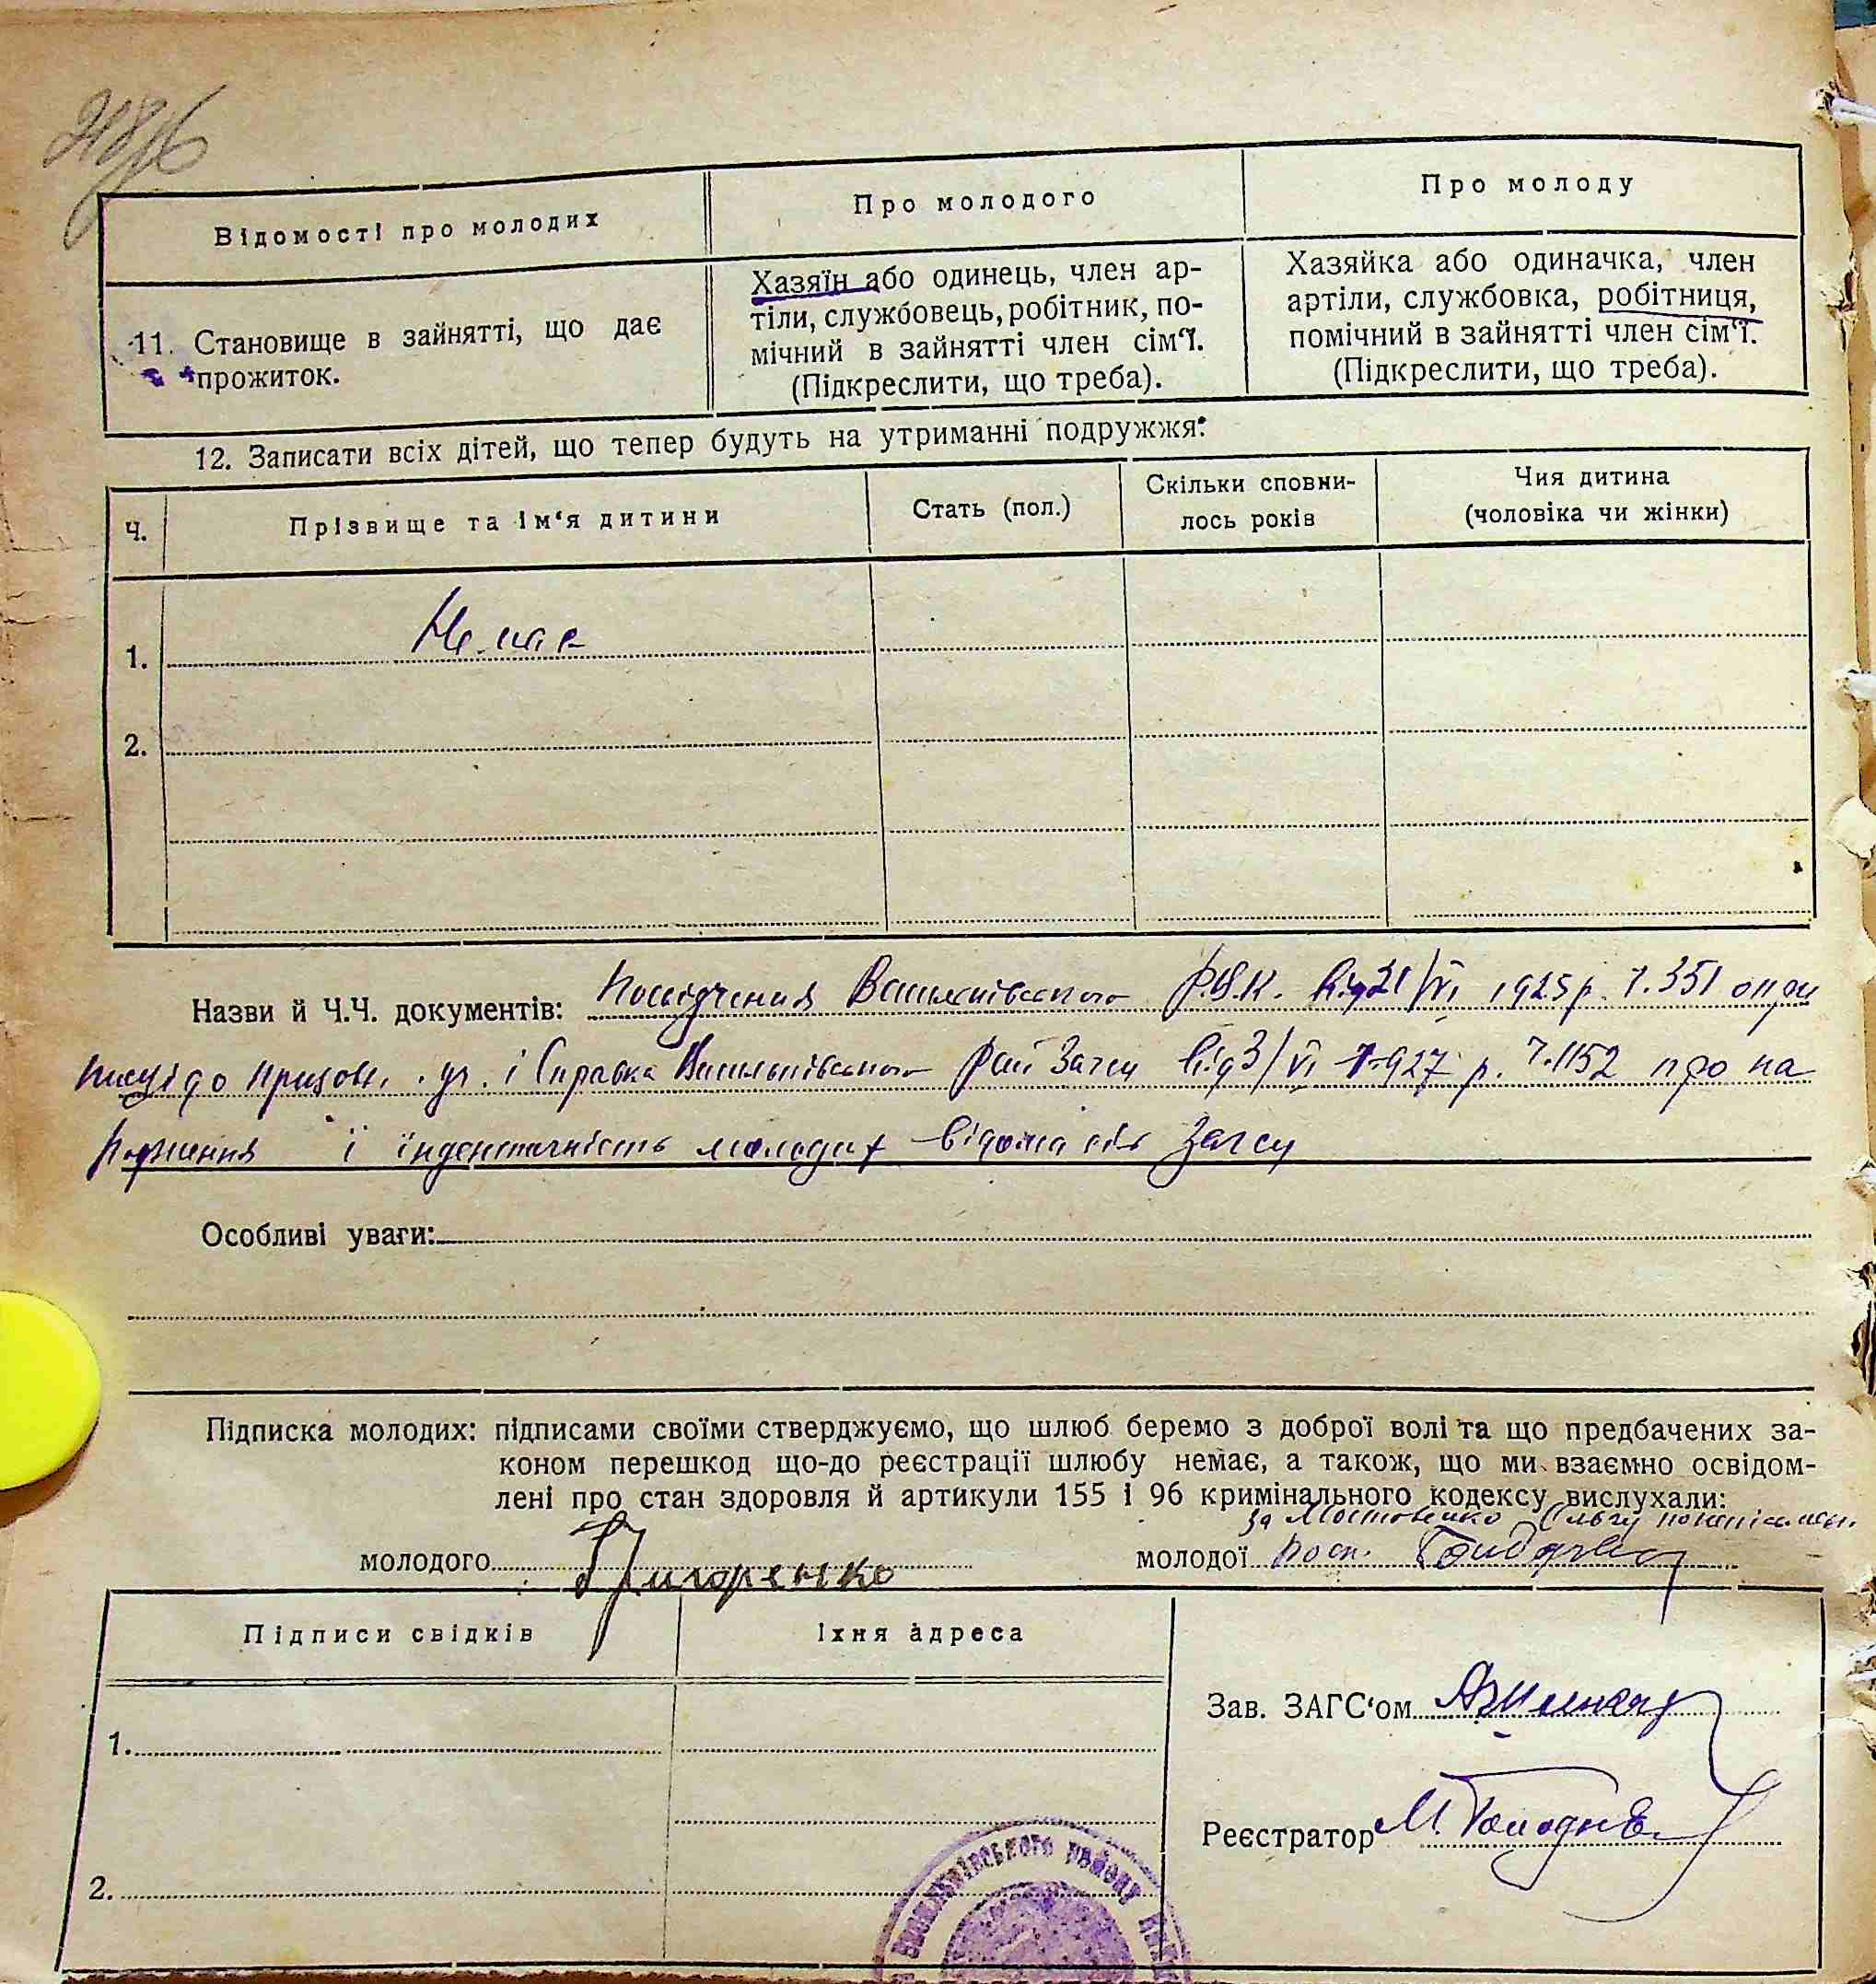 Відомості про молодих
Про молодого
Про молоду
11. Становище в зайнятті, що дає
прожиток.
Хазяїн або одинець, член ар-
тіли, службовець, робітник, по-
мічний в зайнятті член сім‘ї.
(Підкреслити, що треба).
Хазяйка або одиначка, член
артіли, службовка, робітниця,
помічний в зайнятті член сім‘ї.
(Підкреслити, що треба).
12. Записати всіх дітей, що тепер будуть на утриманні подружжя:
Ч.
Прізвище та ім‘я дитини
Стать (пол.)
Скільки сповни-
лось років
Чия дитина
(чоловіка чи жінки)
1. Немає
2.
Назви й Ч.Ч. документів: Посвідчення Васильківського Р.В.К. від 21/VI 1925 р. Ч. 351 о при
писці до призовн. . і Справка Васильківського Рай Загсу від 3/VI 1927 р. Ч. 1152 про на
і індентичність молодих відома Загсу
Особливі уваги:
Підписка молодих: підписами своїми стверджуємо, що шлюб беремо з доброї волі та що предбачених за-
коном перешкод що-до реєстрації шлюбу немає, а також, що ми взаємно освідом-
лені про стан здоровля й артикули 155 і 96 кримінального кодексу вислухали:
за Ольгу
молодого Григоренко
молодої
Підписи свідків
Їхня адреса
1.
2.
Зав. ЗАГС‘ом
Реєстратор М.
Васильківського району